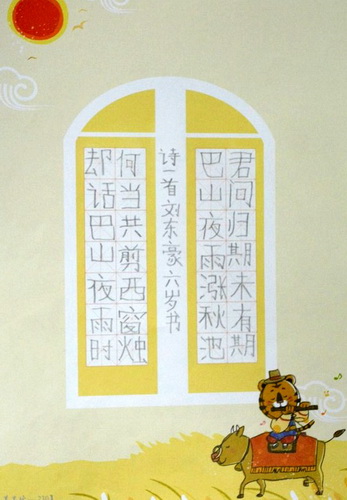 君问归期未有期
巴山夜雨涨秋池
诗一首刘东豪六岁书
何当共剪西窗烛
却话巴山夜雨时